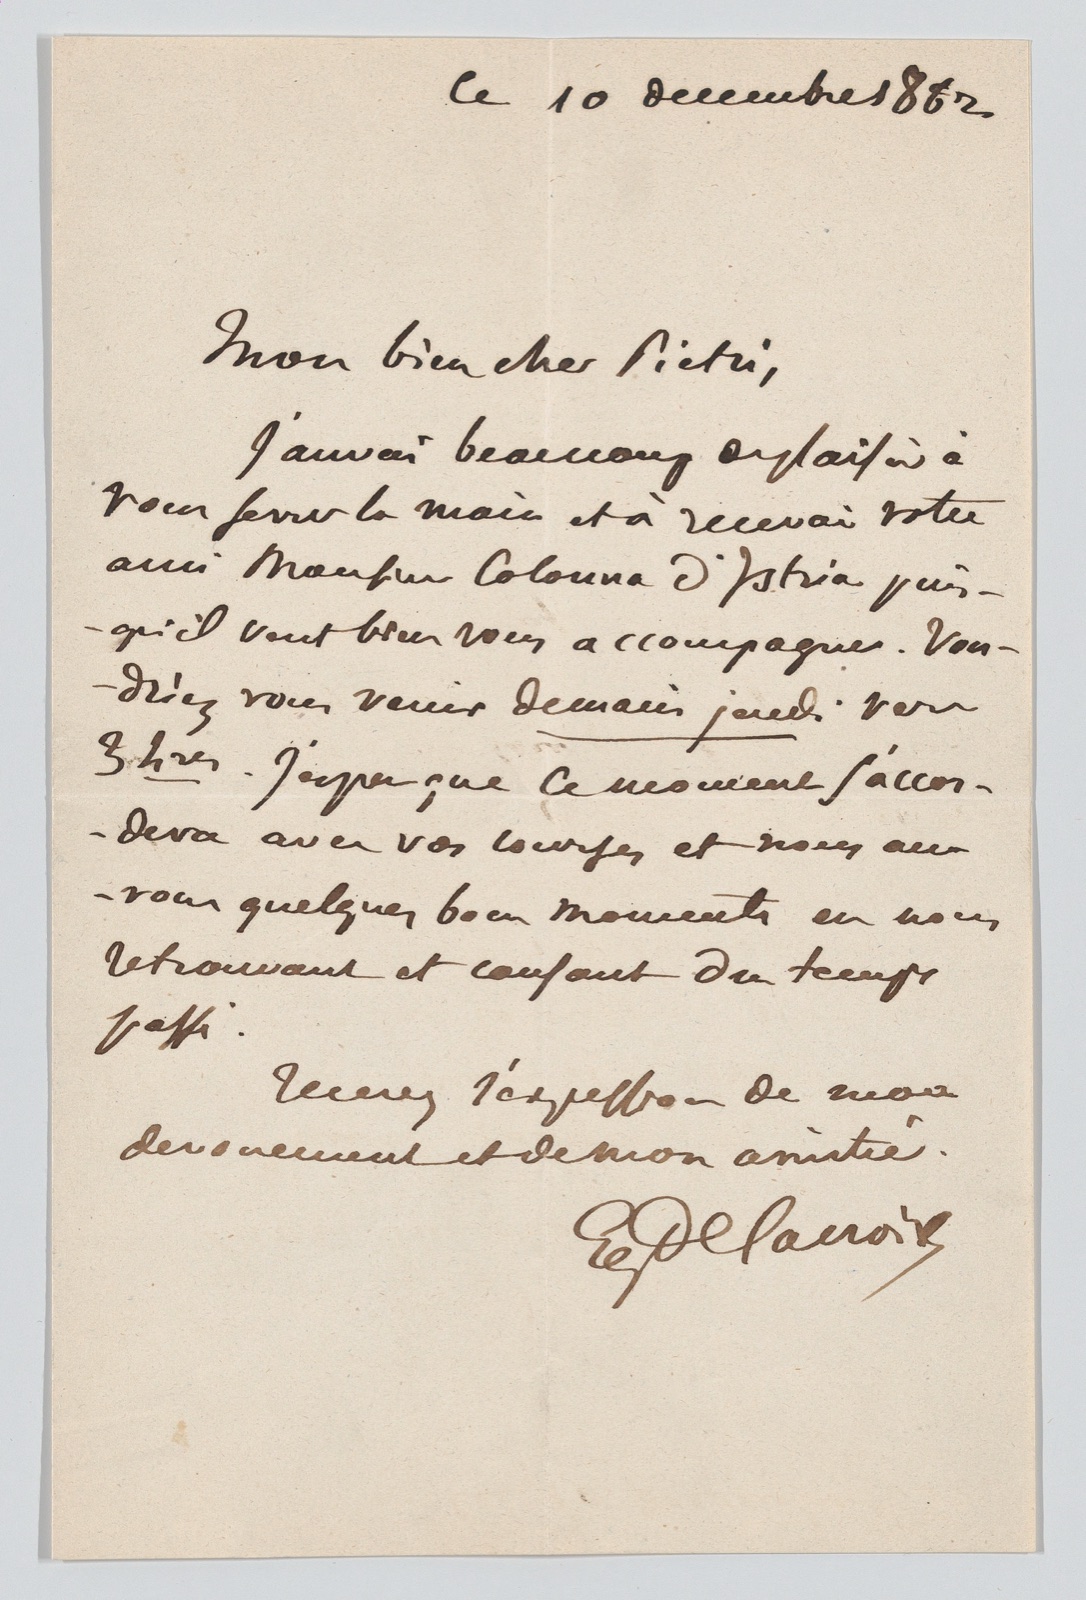 Ce 10 decembre 1862
Mon bien cher Pietri,
J'aurai beaucoup de plaisir à
vous serrer la main et à recevoir votre
ami Monsieur Colonna d'Istria puis-
-qu'il veut bien vous accompagner. Vou-
-driez vous venir demain jeudi vers
3 hres. J'espere que ce moment s'accor-
-dera avec vos courses et nous au-
-rons quelques bons moments en nous
retrouvant et causant du temps
passé.
Recevez l'expression de mon
devouement et de mon amitié.
Eg Delacroix